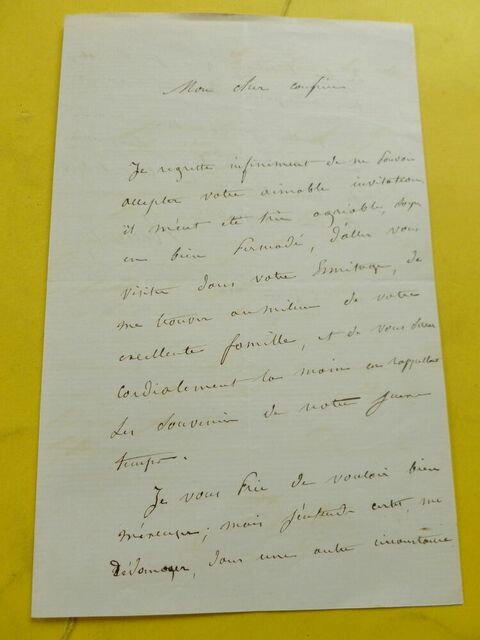 Mon cher confrère
Je regrette infiniment de ne pouvoir
accepter votre aimable invitation,
il m'eut été très agréable, soyez
en bien persuadé, d'aller vous
visiter dans votre Ermitage, de
me trouver au milieu de votre
excellente famille, et de vous serrer
cordialement la main en rappelant
les souvenirs de notre jeune
temps.
Je vous prie de vouloir bien
m'excuser; mais j'entends certes, me
dédomager, dans une autre circonstance